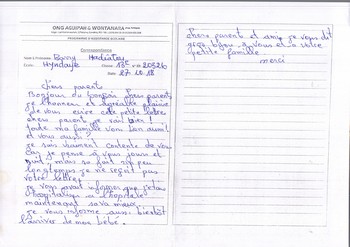 ONG AGUIPA & WONTANARA
PROGRAMME D'ASSISTANCE SCOLAIRE
Correspondance
Nom & Prénoms: Barry
Ecole: Hyndaye Classe 13e N° 20526
Date 27.10.18
Chers parent
Bonjour ou bonsoir chers parent
je l'honneur et agréable plaisir
de vous ecrire cette petite lettre
chers parent je vais bien!
toute ma famille vont bien aussi
et vous aussi?
je suis vraiment contente de vous
car je pense à vous jours et
nuit, mais sa fait un peu
longtemps je ne reçoit pas
votre lettre.
je vous avait informer que j'etais
hospitaliser à l'hôpital
maintenant sava mieux
je vous informe aussi bientôt
l'arriver de mon bébé.
Chers parent et amis je vous dit
gros bijou à vous et à votre
petite famille
merci